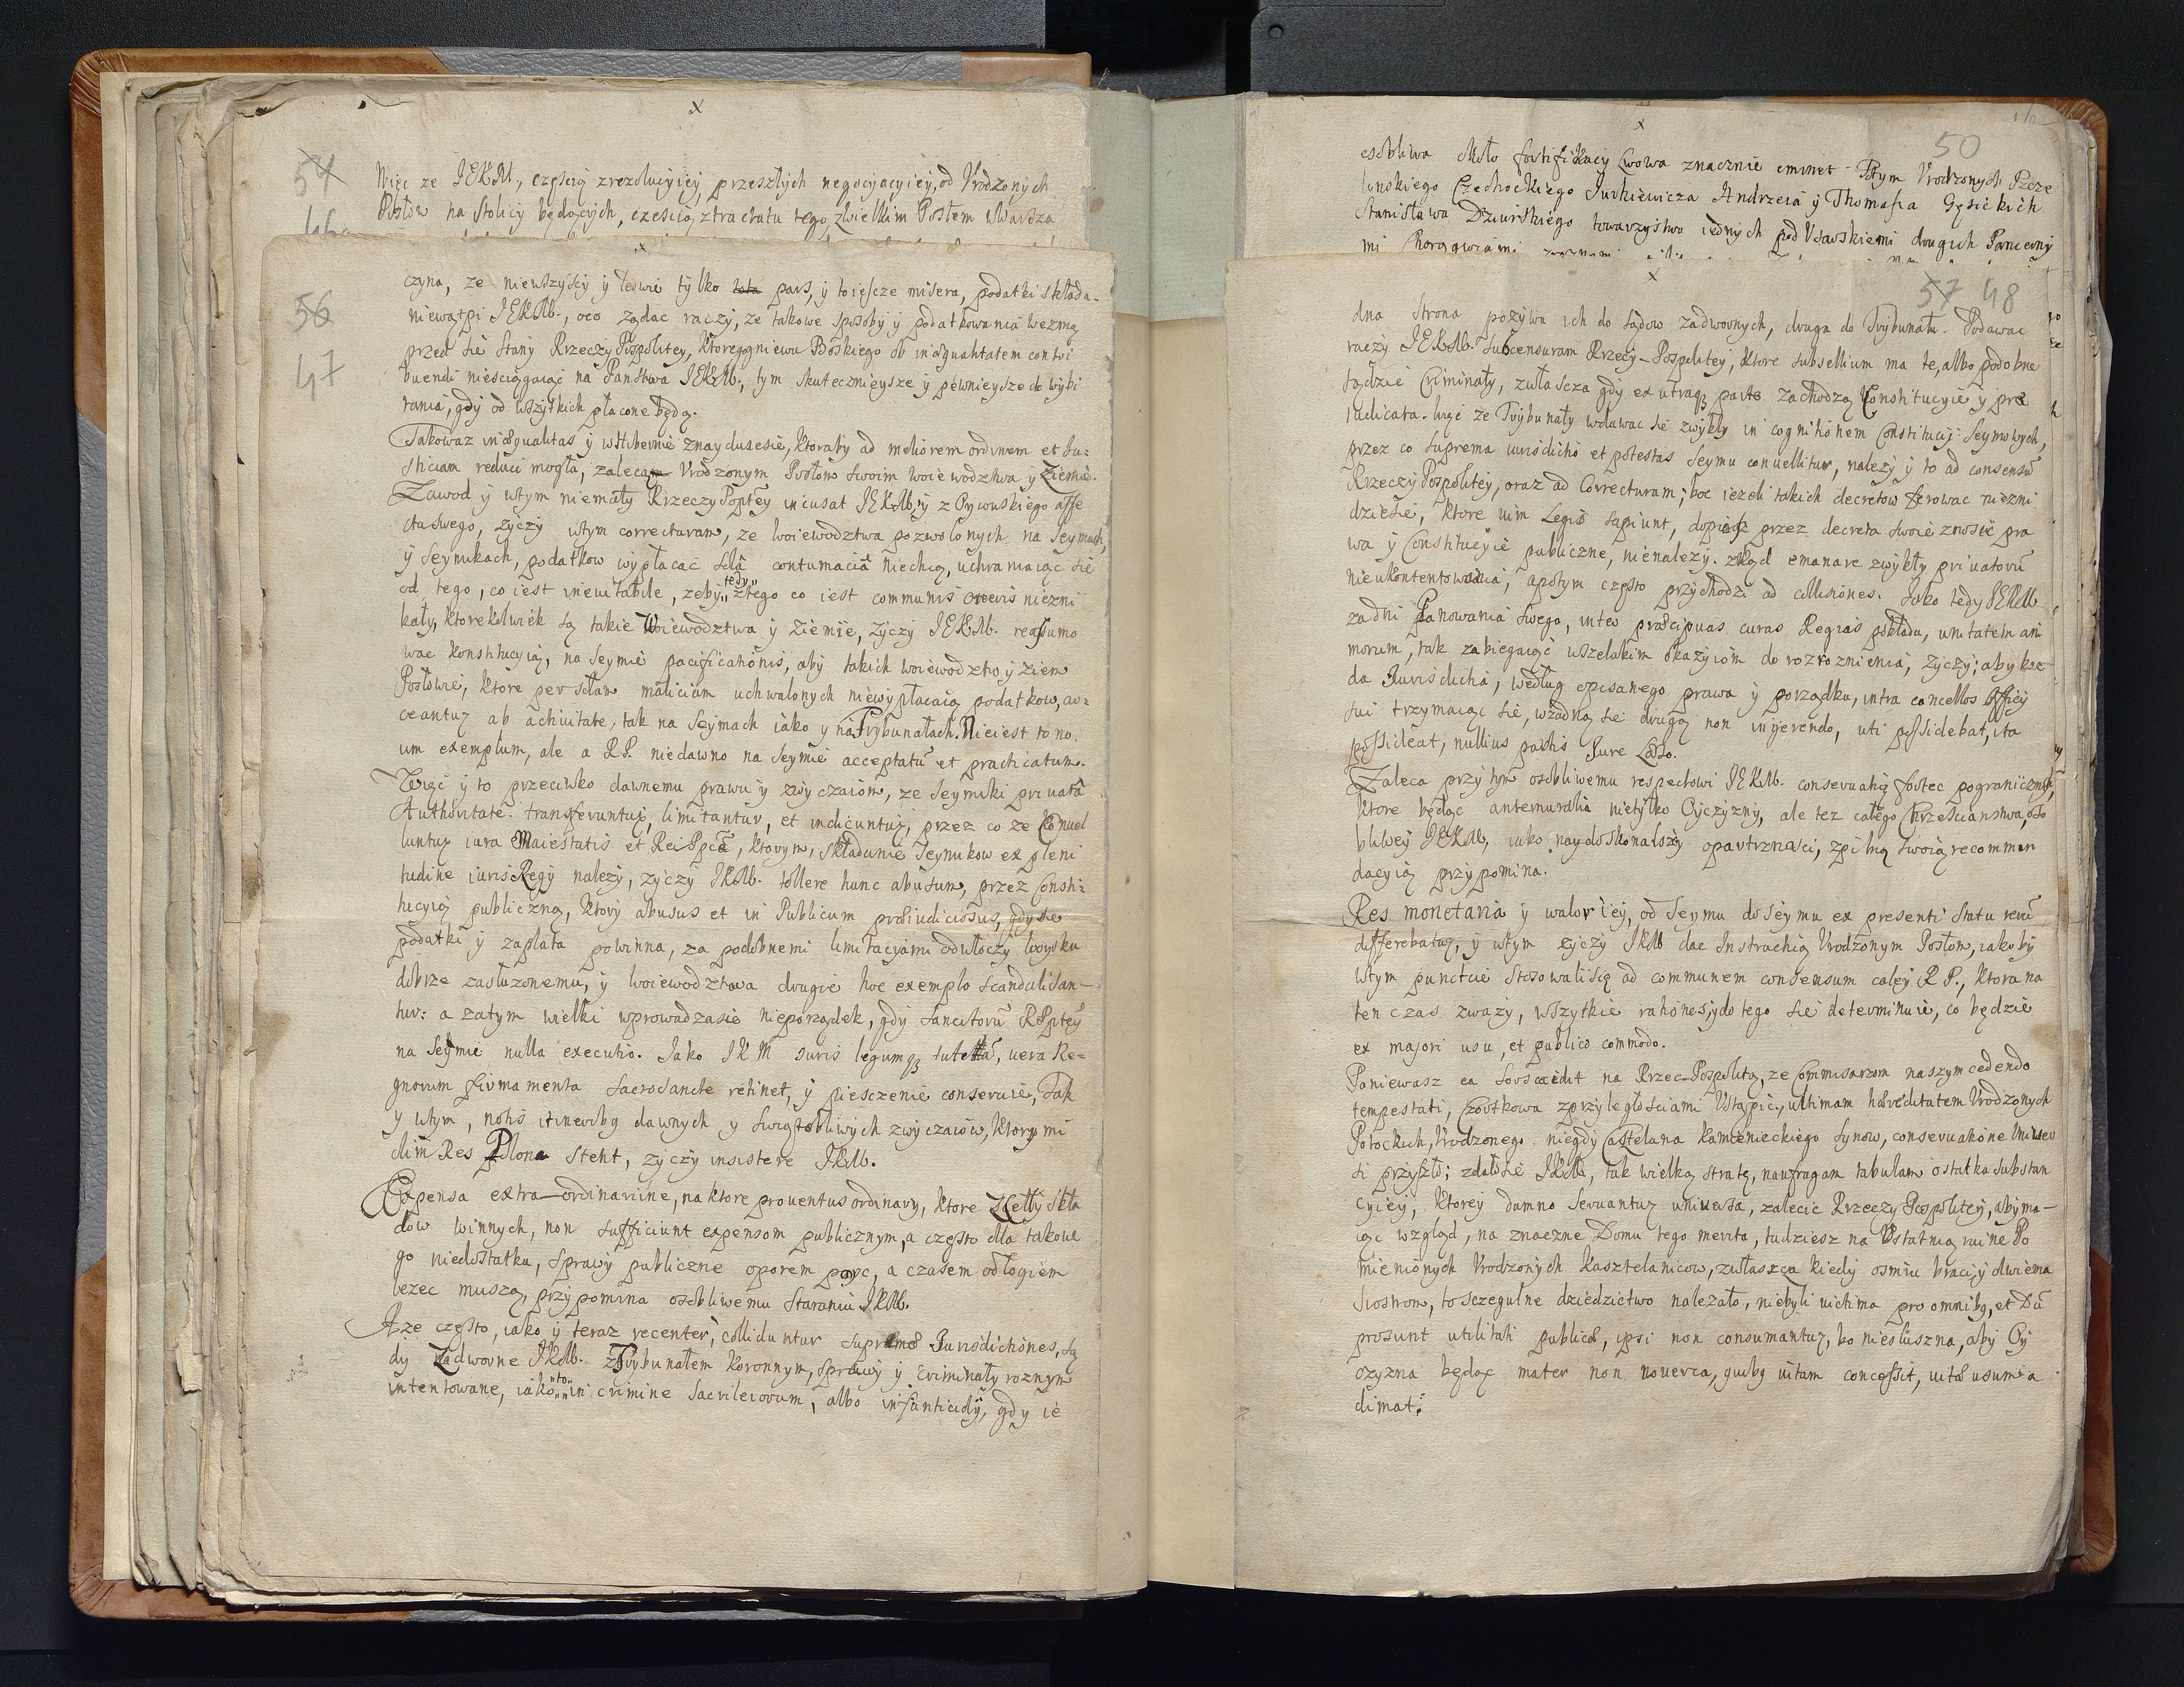 x
54
Więc ze JEKM., częscią z rezolucyiey, przeszłych negocyacyiey, od Vrodzonych
Posłow na Stolicy będących, czescią z tractatu tego, z wielkim Posłem w Warsza
x
56
47
czyna, ze niewszyscy y ledwie tylko tota pars, y to iescze misera, podatki składa-
niewątpi JEKM., oco ządac raczy, ze takowe sposoby y podatkowania wezmą
przed się Stany Rzeczy Pospolitey, ktore gniewu Boskiego ob inæqualitatem contri
buendi niesciągaiąc na Panstwa JEKM., tym skutecznieysze y pewnieysze do wybi
rania, gdy od wszytkich płacone będą.
Takowaz inæqualitas y w Hibernie znayduiesie, ktoraby ad meliorem ordinem et Iu=
sticiam reduci mogła, zaleca Vrodzonym Posłom swoim woiewodztwa y Ziemie.
Zawod y wtym niemały Rzeczy Popltey incusat JEKM, y z Oycowskiego affe
ctu swego, zyczy wtym correcturam, ze woiewodztwa pozwolonych na Seymach,
y Seymikach, podatkow wypłacac sola contumacia niechcą, uchraniaiąc sie
od tego, co iest inevitabile, zeby tedy z tego co iest communis oneris niezni
kały, ktorekolwiek są takie Woiewodztwa y Ziemie, zyczy JEKM. reassumo
wac konstitucyią, na Seymie pacificationis, aby takich woiewodztw, y ziem
Posłowie, ktore per solam maliciam uchwalonych niewypłacaią podatkow, ar=
ceantur ab activitate, tak na Seymach iako y na Trybunałach. Nie iest to no
um exemplum, ale a R.P. niedawno na Seymie acceptatu et practicatum.
Więc y to przeciwko dawnemu prawu y zwyczaiom, ze Seymiki privata
Authoritate transferuntur, limitantur, et indicuntur, przez co ze Convel
luntur iura Maiestatis et Rei Pcæ, ktorym, składanie Seymikow ex pleni
tudine iuris Regij nalezy, zyczy JKM. tollere hunc abusum, przez Consti=
tucyią publiczną, ktory abusus et in Publicum præiudiciosus, gdy sie
podatki y zapłata powinna, za podobnemi limitacyiami odwłoczy woysku
dobrze zasłuzonemu, y woiewodztwa drugie hoc exemplo scandalisan-
tur: a zatym wielki wprowadzasie nieporządek, gdy sancitoru RPptey
na Seymie nulla executio. Iako JKM iuris legumq tutela, vera Re=
gnorum firmamenta sacrosancte retinet, y piesczenie conservuie, Tak
y wtym, notis itinerib dawnych y swiątobliwych zwyczaiow, ktorymi
olim Res Polona Stetit, zyczy insistere JKM.
Expensa extra-ordinarijne, na ktore proventus ordinary, ktore z Cełł y skła
dow winnych, non sufficiunt expensom publicznym, a często dla takowe
go niedostatku, sprawy publiczne oporem poyc, a czasem odłogiem
lezec muszą, przypomina osobliwemu staraniu JKM.
A ze często, iako y teraz recenter, colliduntur supremæ Iurisdictiones, Są
dy Zadworne JKM. z Trybunałem Koronnym, sprawy y Criminały roznym
intentowane, iako to in crimine sacrilegiorum, albo infanticidij, gdy ie
x
50
osobliwa około fortifikacij Lwowa znacznie eminet. Potym Vrodzonych Pcze
linskiego Czechockiego Iurkiewicza Andrzeia y Thomasza Gęsickich
Stanisława Dziurskiego towarzystwo iednych pod Vsarskiemi drugich Pancerny
mi Chorągwiami
x
57 48
dna strona pozywa ich do sądow zadwornych, druga do Trybunału. Podawac
raczy JEKM. sub censuram Rzeczy-Pospolitey, ktore subsellium ma te, albo podobne
sądzic Criminały, zwłascza gdy ex utraq parte zachodzą Constitucyie y præ
iudicata. Więc ze Trybunały wdawac sie zwykły in cognitionem Constitucij Seymowych,
przez co suprema iurisdictio et potestas Seymu convellitur, nalezy y to ad consensu
Rzeczy Pospolitey, oraz ad Correcturam; boc iezeli takich decretow ferowac niezni
dziesie, ktore vim Legis sapiunt, dopiosz przez decreta swoie znosic pra
wa y Constitucyie publiczne, nienalezy. zkąd emanare zwykły privatoru
nieukontentowania, apotym często przychodzi ad collisiones. Iako tedy JEKM
za dni Panowania swego, inter præcipuas curas Regias pokłada, unitatem ani
morum, tak zabiegaiąc wszelakim okazyiom do rozroznienia, zyczy; aby kaz
da Iurisdictia, według opisanego prawa y porządku, intra cancellos Officij
sui trzymaiąc sie, wzadną sie drugą non ingerendo, uti possidebat, ita
possideat, nullius partis Iure Læso.
Zaleca przytym osobliwemu respectowi JEKM. conservatią fostec pogranicznych,
ktore będąc antemuralia nietylko Oyczyzny, ale tez całego Chrzescianstwa, oso
bliwey JEKM, iako naydoskonalszey opatrznosci, z pilną swoią recommen
dacyią przypomina.
Res monetaria y walor iey, od Seymu do Seymu ex presenti statu reru
differebatur, y wtym zyczy JKM dac Instructią Vrodzonym Posłom, iakoby
wtym punctcie stosowali się ad communem consensum całey R P., ktora na
ten czas zwazy, wszytkie rationes, y do tego sie determinuie, co będzie
ex majori usu, et publico commodo.
Poniewasz ea sors cecidit na Rzecz-Pospolitą, ze Commisarzom naszym cedendo
tempestati, Czortkowa z przyległosciami Vstąpic, ultimam hæreditatem Vrodzonych
Potockich, Vrodzonego niegdy Castelana Kamienieckiego synow, conservatione Univer
si przyszło; zdało sie JKM, tak wielką stratę, naufragam tabulam ostatka substan
cyiey, ktorey damno servantur universa, zalecic Rzeczy Pospolitey, aby ma-
iąc wzgląd, na znaczne Domu tego merita, tudziesz na Vstatnią ruine Po
mienionych Vrodzonych Kasztelanicow, zwłaszcza kiedy osmiu braci, y dwiema
siostrom, to sczegulne dziedzictwo nalezało, niebyli victima pro omnib, et Du
prosunt utilitati publicæ, ipsi non consumantur, bo niesłuszna, aby Oy
czyzna będąc mater non noverca, quib vitam concessit, vitæ usum a
dimat.